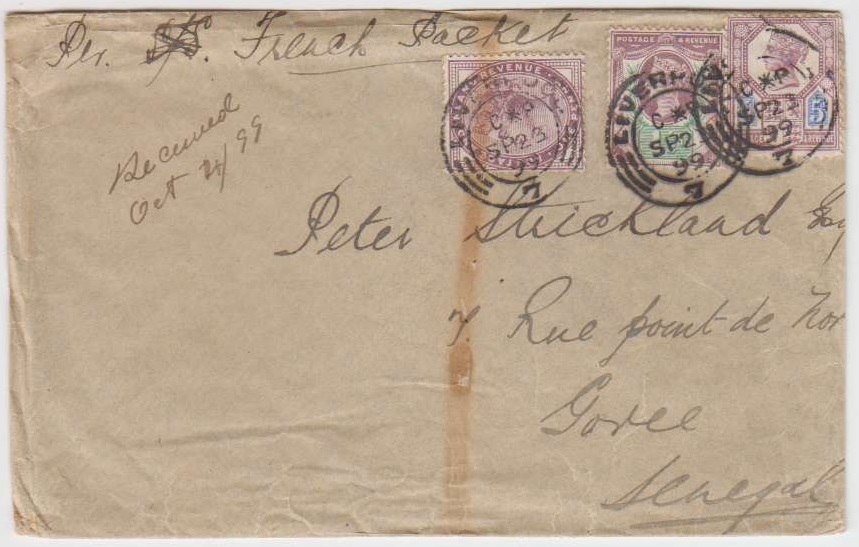 Per French Packet
Received
Oct 99
POSTAGE & REVENUE
REVENUE
LIVERPOOL
C*P
SP23
99
7
LIVERP
C*P
SP2
99
7
C*P
SP23
99
7
Peter Strickland Esq
7. Rue point de Nor
Goree
Senegal